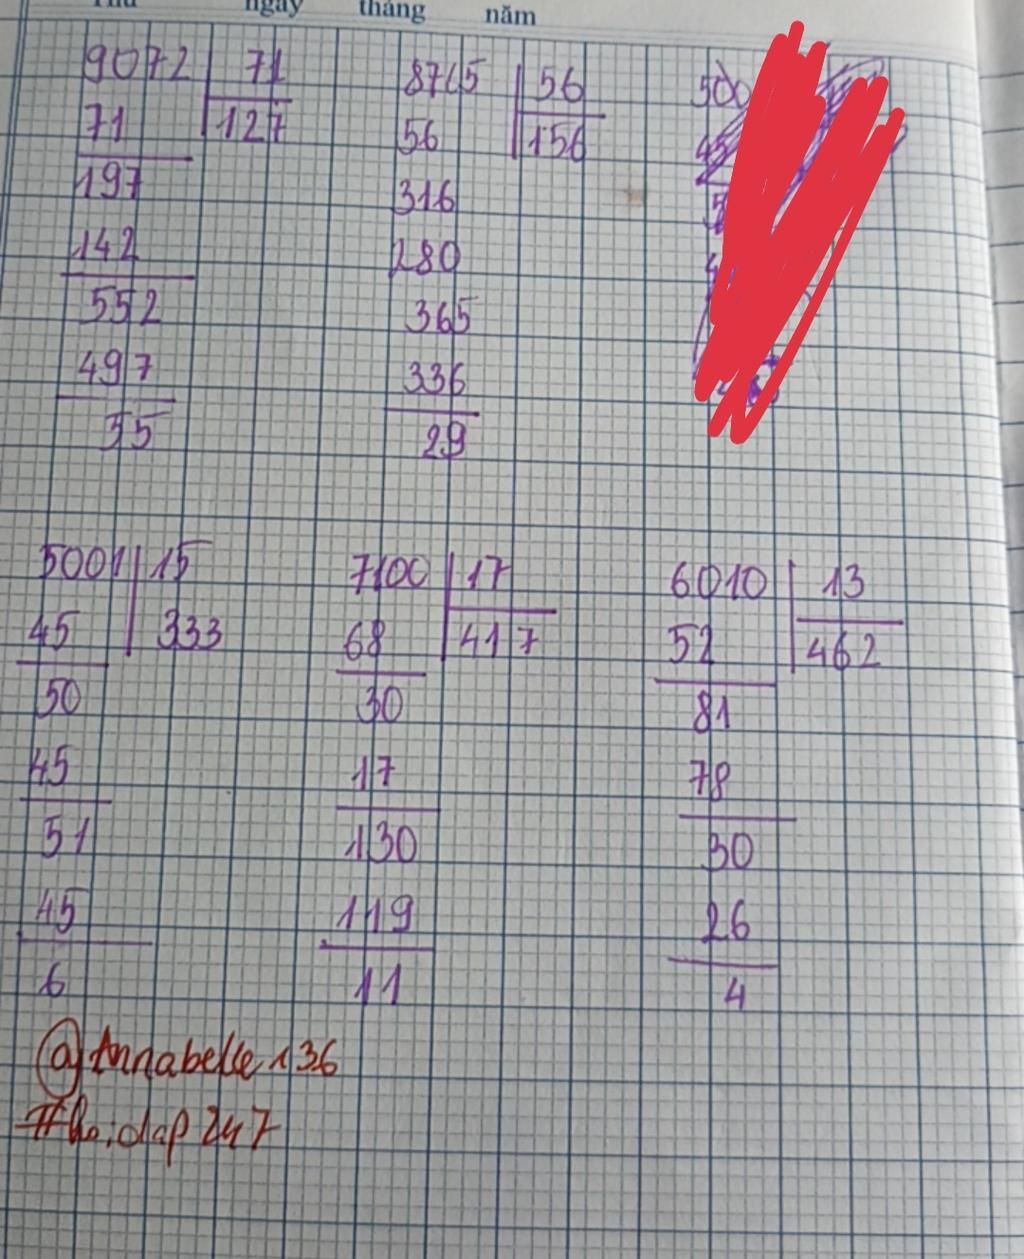 Thứ ngày tháng năm
9072 71
71 127
197
142
552
497
35
8765 56
56 156
316
280
365
336
29
500
45
5001 15
45 333
50
45
51
45
6
7100 17
68 417
30
17
130
119
11
6010 13
52 462
81
78
30
26
4
@Annabelle 136
#hoidap 247